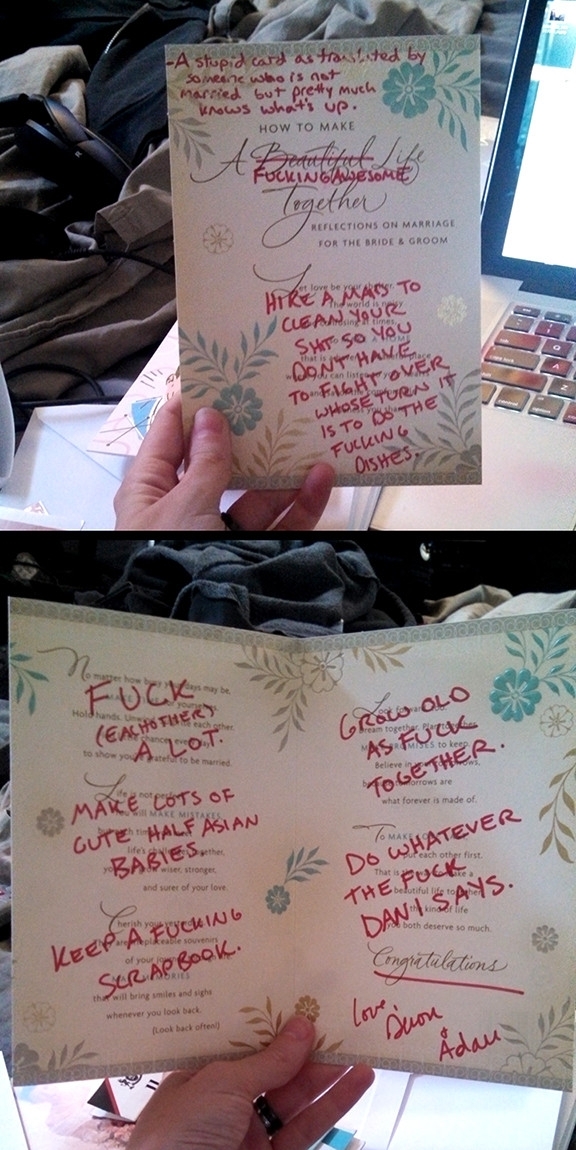 -A stupid card as translated by
someone who is not
married but pretty much
knows what's up.
HOW TO MAKE
A Beautiful Life
FUCKING AWESOME
Together
REFLECTIONS ON MARRIAGE
FOR THE BRIDE & GROOM
Let love be your
The world is noisy
at times.
HIRE A MAID TO
CLEAN YOUR
SHIT SO YOU
DON'T HAVE
TO FIGHT OVER
WHOSE TURN IT
IS TO DO THE
FUCKING
DISHES.
No matter how busy your days may be,
Hold hands. each other.
to show you're grateful to be married.
FUCK
(EACHOTHER)
A LOT.
Life is not
You will MAKE MISTAKES
life's together,
wiser, stronger,
and surer of your love.
MAKE LOTS OF
CUTE HALF ASIAN
BABIES
Cherish your
are irreplaceable souvenirs
of your
MEMORIES
that will bring smiles and sighs
whenever you look back.
(Look back often!)
KEEP A FUCKING
SCRAPBOOK.
Look forward
Dream together. Plan together.
PROMISES to keep.
Believe in
tomorrows are
what forever is made of.
GROW OLD
AS FUCK
TOGETHER.
To MAKE
put each other first.
That is
beautiful life
the kind of life
you both deserve so much.
DO WHATEVER
THE FUCK
DANI SAYS.
Congratulations
love,
&
Adam